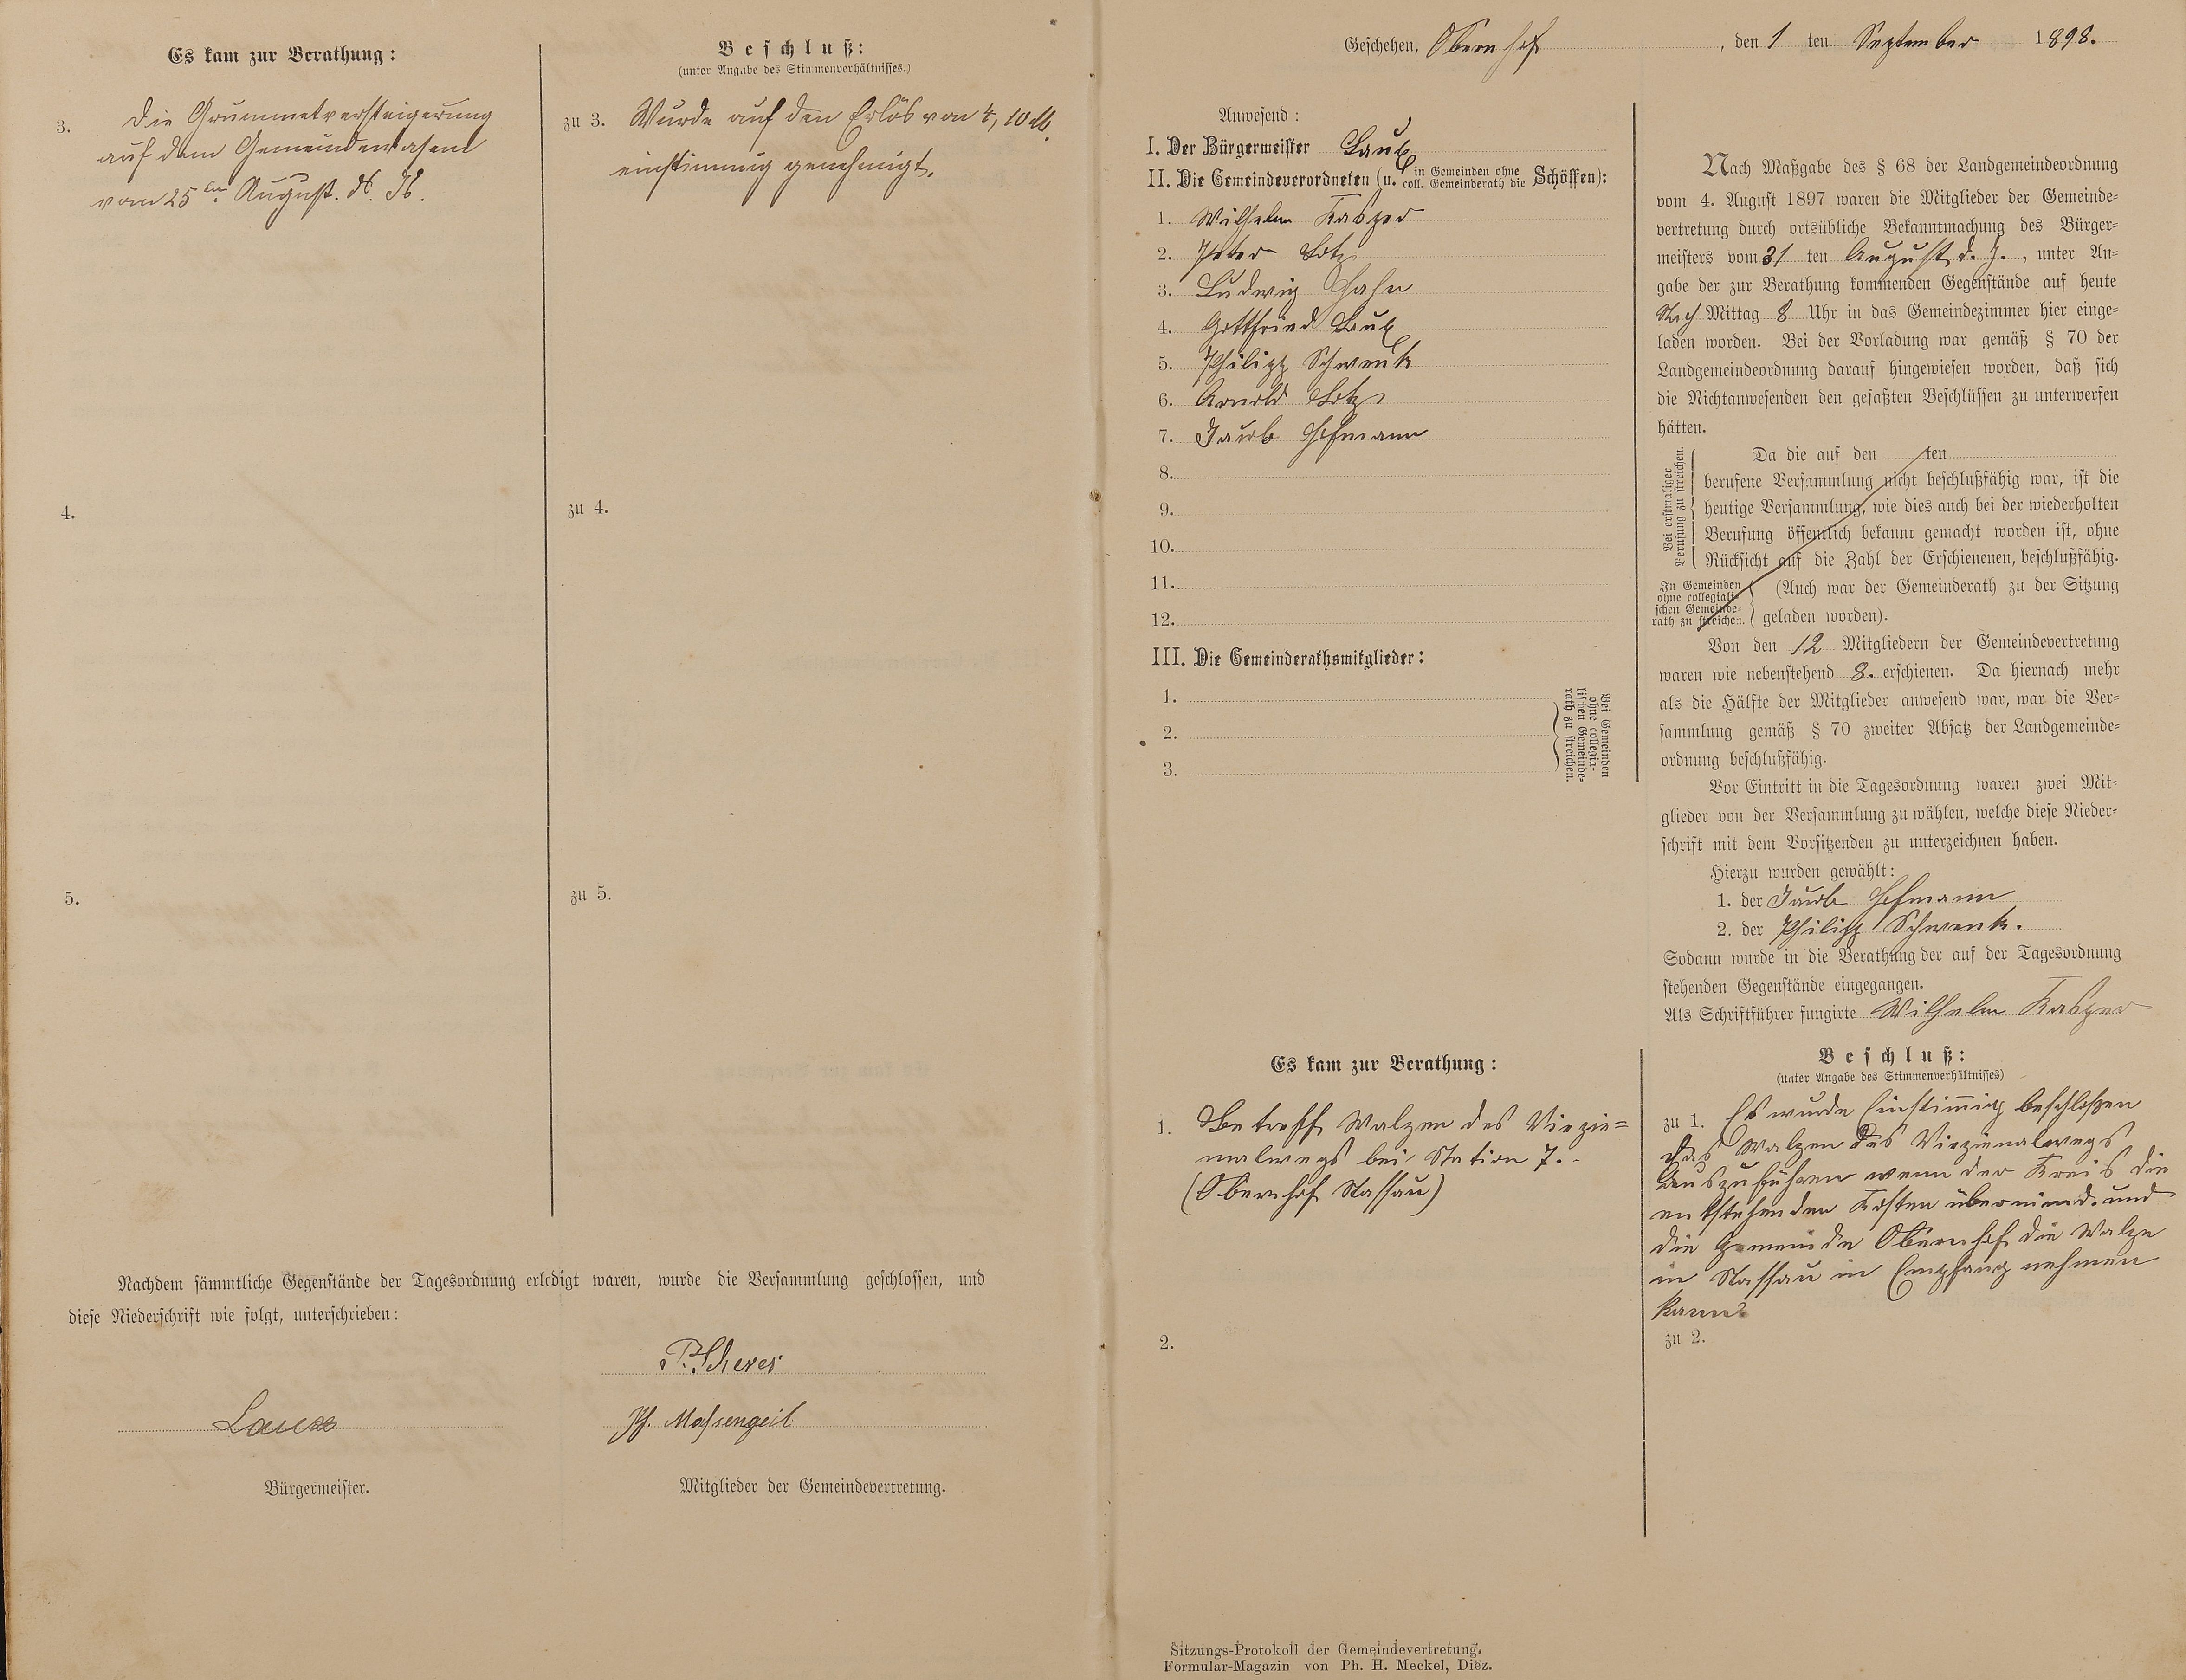 Es kam zur Berathung:
Beschluß:
(unter Angabe des Stimmenverhältnisses.)
3. Die Grummetversteigerung
auf dem Gemeindewasem
vom 25ten August. ds. Js.
zu 3. Wurde auf den Erlös von 4,10 M.
einstimmig genehmigt.
4.
zu 4.
5.
zu 5.
Nachdem sämmtliche Gegenstände der Tagesordnung erledigt waren, wurde die Versammlung geschlossen, und
diese Niederschrift wie folgt, unterschrieben:
P. Scherer
Ph. Massengeil
Bürgermeister.
Mitglieder der Gemeindevertretung.
Geschehen, Obernhof, den 1 ten September 1898.
Anwesend:
I. Der Bürgermeister
II. Die Gemeindeverordneten (u. in Gemeinden ohne coll. Gemeinderath die Schöffen):
1. Wilhelm Kasper
2. Peter Lotz
3. Ludwig Hahn
4. Gottfried
5. Philipp Schwenk
6. Arnold Lotz
7. Jacob Hofmann
8.
9.
10.
11.
12.
III. Die Gemeinderathsmitglieder:
1.
2.
3.
Bei Gemeinden
ohne collegia-
lischen Gemeinde-
rath zu streichen.
Nach Maßgabe des § 68 der Landgemeindeordnung
vom 4. August 1897 waren die Mitglieder der Gemeinde-
vertretung durch ortsübliche Bekanntmachung des Bürger-
meisters vom 31 ten August d. J., unter An-
gabe der zur Berathung kommenden Gegenstände auf heute
Nach Mittag 8 Uhr in das Gemeindezimmer hier einge-
laden worden. Bei der Vorladung war gemäß § 70 der
Landgemeindeordnung darauf hingewiesen worden, daß sich
die Nichtanwesenden den gefaßten Beschlüssen zu unterwerfen
hätten.
Bei erstmaliger
Berufung zu streichen.
Da die auf den ten
berufene Versammlung nicht beschlußfähig war, ist die
heutige Versammlung, wie dies auch bei der wiederholten
Berufung öffentlich bekannt gemacht worden ist, ohne
Rücksicht auf die Zahl der Erschienenen, beschlußfähig.
In Gemeinden
ohne collegiali-
schen Gemeinde-
rath zu streichen.
(Auch war der Gemeinderath zu der Sitzung
geladen worden).
Von den 12 Mitgliedern der Gemeindevertretung
waren wie nebenstehend 8. erschienen. Da hiernach mehr
als die Hälfte der Mitglieder anwesend war, war die Ver-
sammlung gemäß § 70 zweiter Absatz der Landgemeinde-
ordnung beschlußfähig.
Vor Eintritt in die Tagesordnung waren zwei Mit-
glieder von der Versammlung zu wählen, welche diese Nieder-
schrift mit dem Vorsitzenden zu unterzeichnen haben.
Hierzu wurden gewählt:
1. der Jacob Hofmann
2. der Philipp Schwenk.
Sodann wurde in die Berathung der auf der Tagesordnung
stehenden Gegenstände eingegangen.
Als Schriftführer fungirte Wilhelm Kasper
Es kam zur Berathung:
Beschluß:
(unter Angabe des Stimmenverhältnisses)
1. Betreff Walzen des Viezie=
nalwegs bei Station 7.
(Obernhof Nassau)
zu 1. Es wurde Einstimmig beschloßen
das Walzen des Viezienalwegs
Auszuführen wenn der Kreis die
entstehenden Kosten übernimd. und
die Gemeinde Obernhof die Walze
in Nassau in Empfang nehmen
kann
2.
zu 2.
Sitzungs-Protokoll der Gemeindevertretung.
Formular-Magazin von Ph. H. Meckel, Diez.